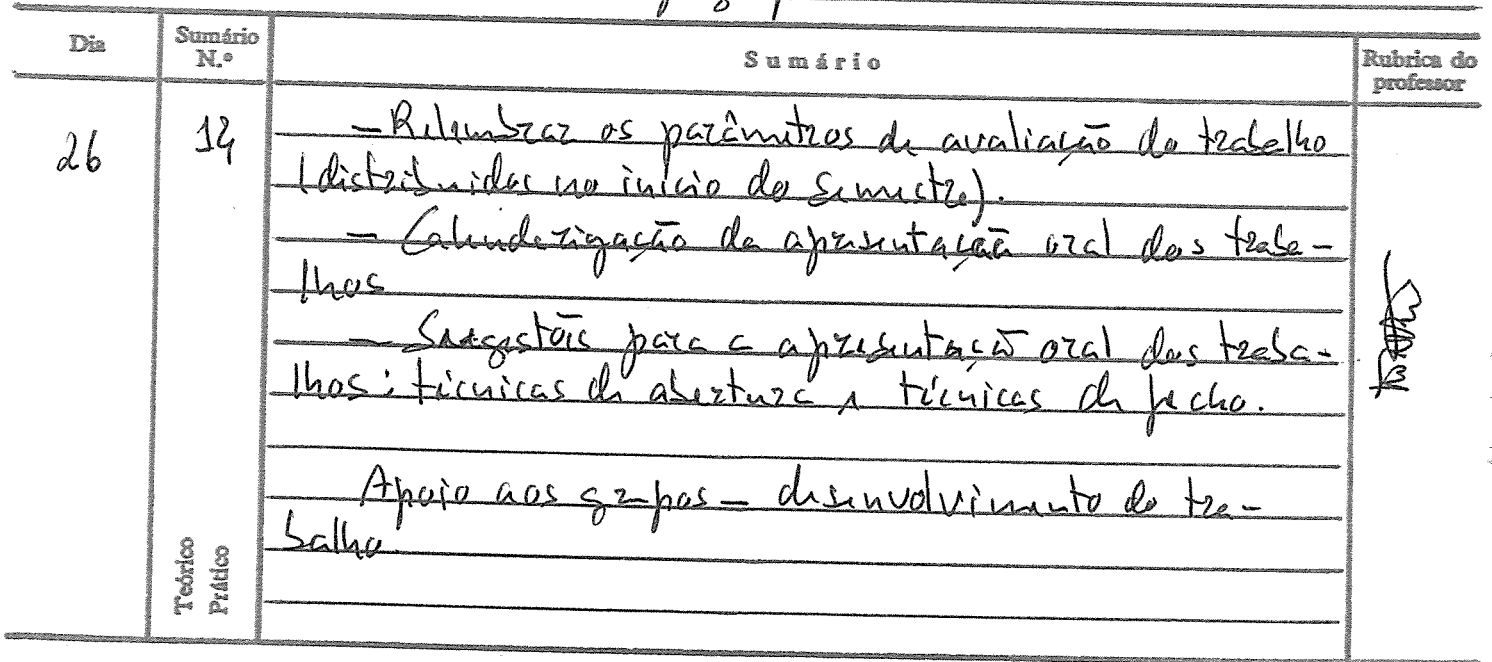 Dia
Sumário N.º
Sumário
Rubrica do professor
26
14
- Relembrar os parâmetros de avaliação do trabalho
(distribuidos no início do semestre).
- Calenderização da apresentação oral dos traba-
lhos
- Sugestões para a apresentação oral dos traba-
lhos: técnicas de abertura e técnicas de fecho.
Apoio aos grupos - desenvolvimento do tra-
balho.
Teórico
Prático